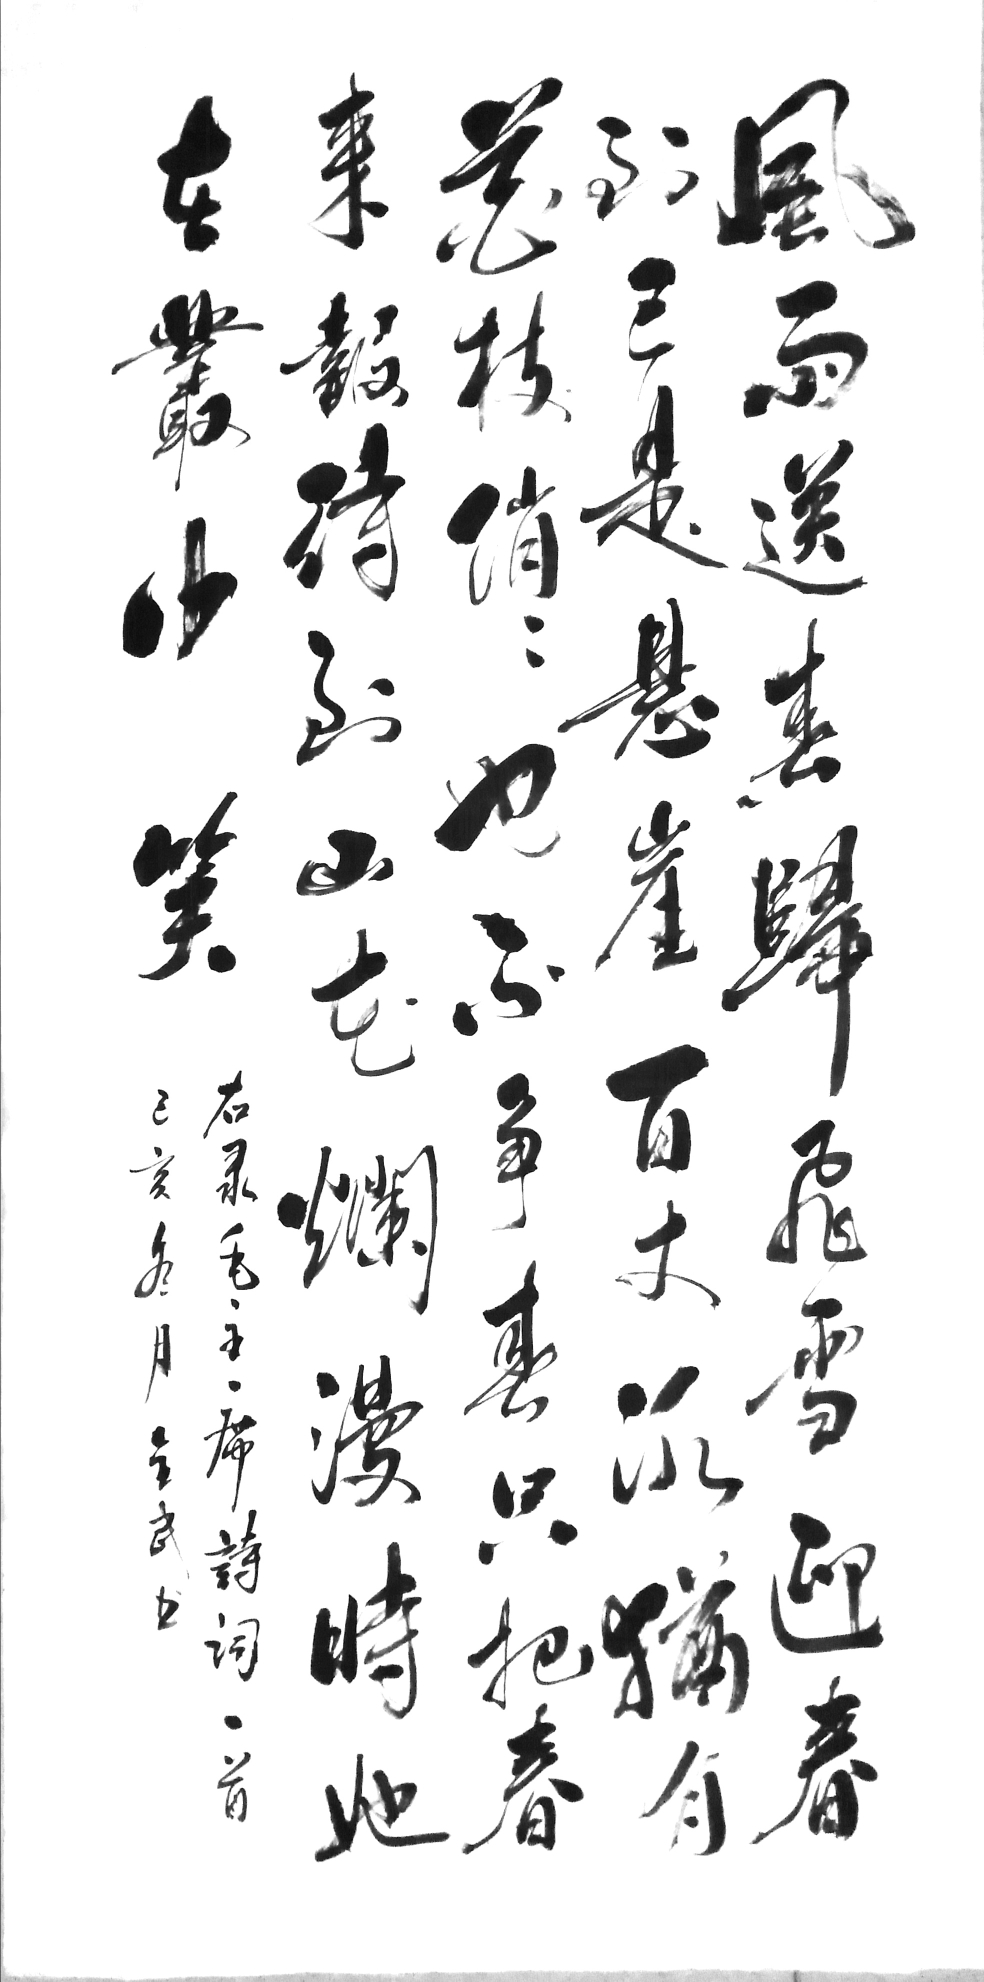 風雨送春歸飛雪迎春
到已是懸崖百丈冰猶有
花枝俏〻也不爭春只把春
來報待到山花爛漫時她
在叢中笑
右录毛主席詩詞一首
己亥冬月金武书